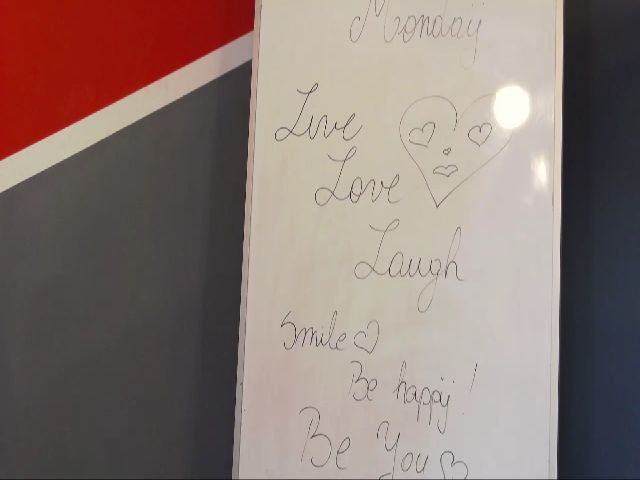 Monday
Live
Love
Laugh
Smile
Be happy!
Be You